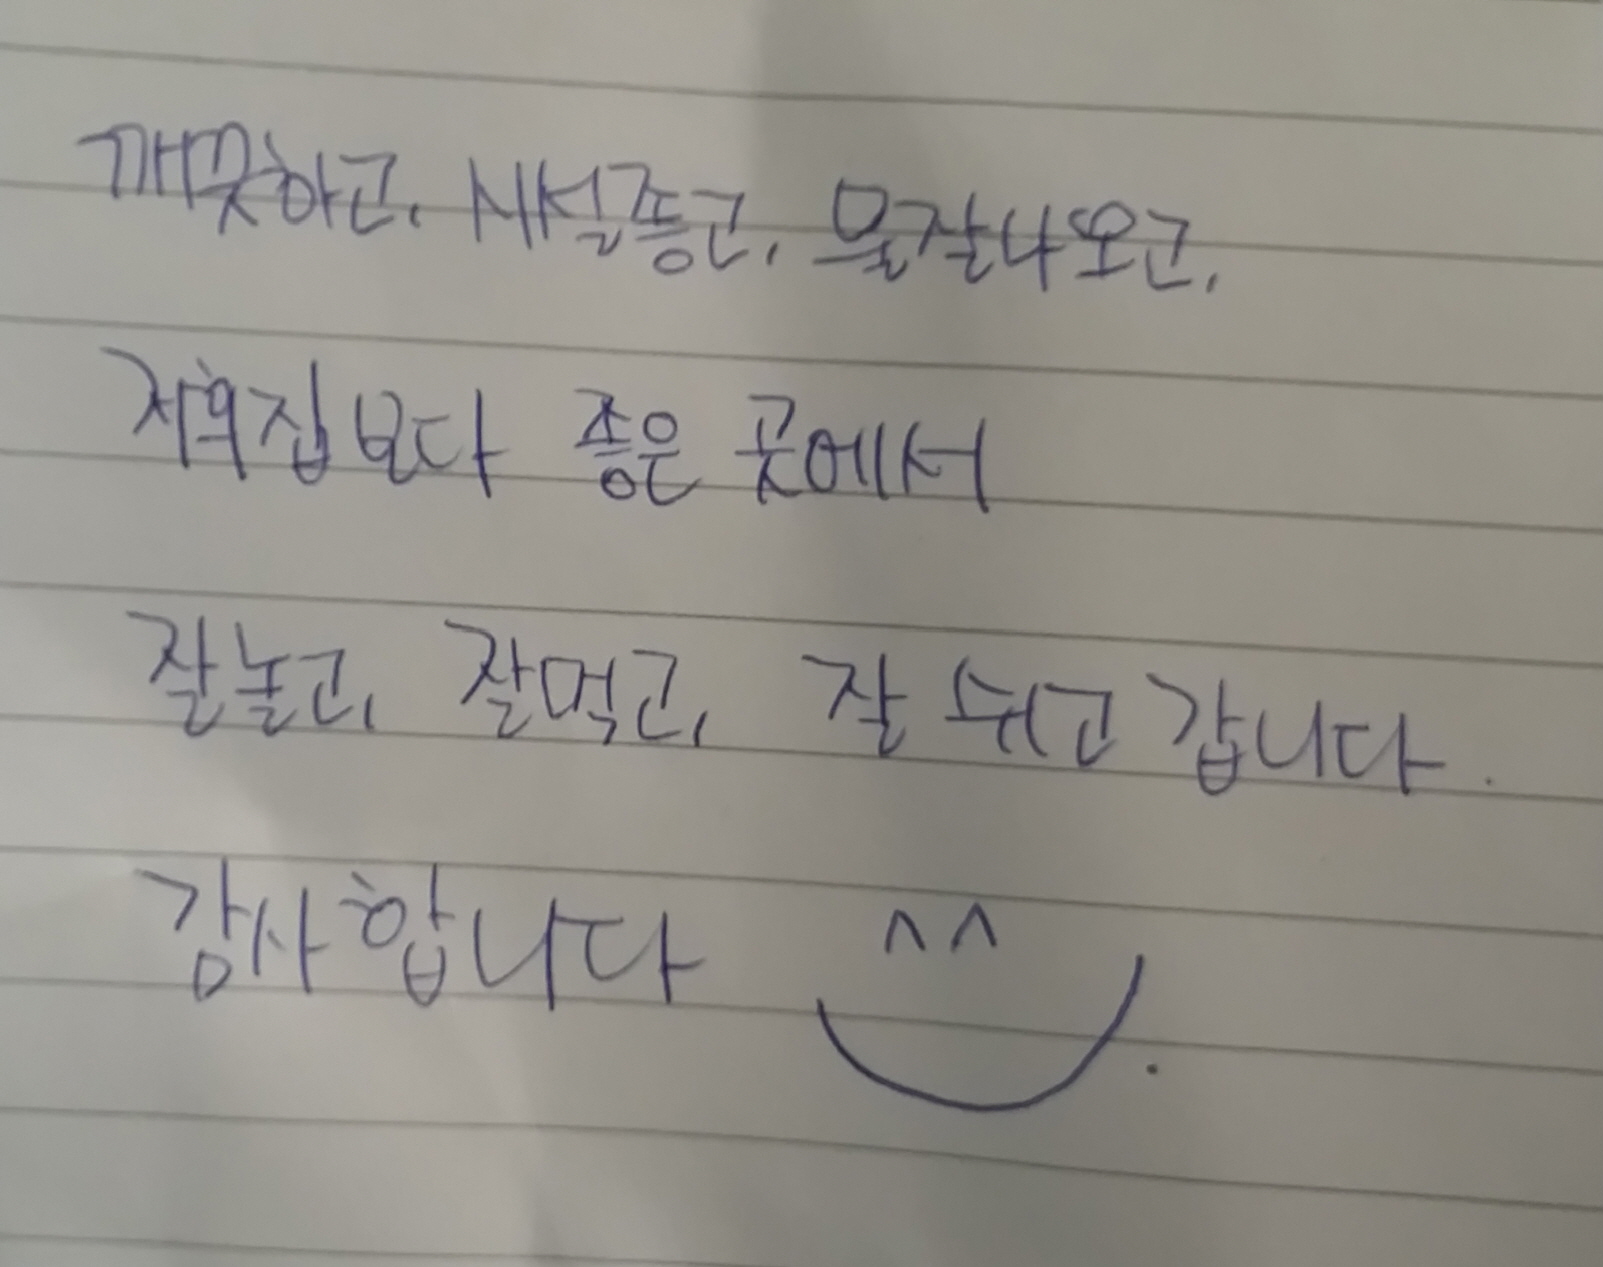 깨끗하고, 시설좋고, 물잘나오고,
저희집보다 좋은 곳에서
잘놀고, 잘먹고, 잘 쉬고 갑니다.
감사합니다 ^^